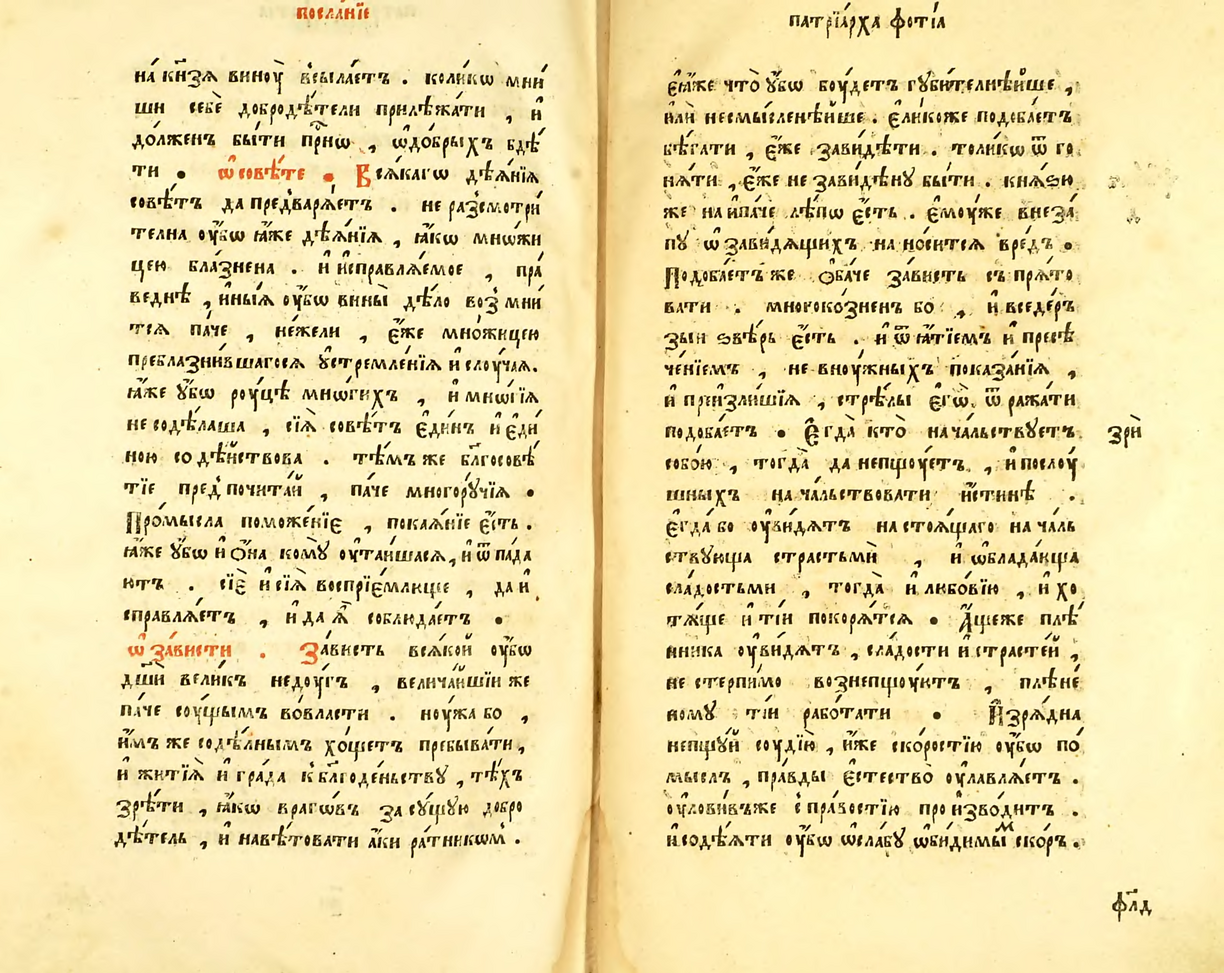 посла́нїе
на́ кнзѧ виноу̀ всыла́етъ . коли́кѡ мни́
ши себѐ добродѣ́тели прилѣжа́ти , и҆
до́лженъ бы́ти при́нѡ , ѡ҆до́брыхъ бдѣ́
ти . ѡ҆ совѣ́те . Всѧ́кагѡ дѣѧ́нїѧ
совѣ́тъ да предварѧ́етъ . не разсмотри́
телна оу҆́бѡ ꙗ҆́же дѣѧ́нїѧ , ꙗ҆́кѡ мно́жи
цею блазнена . и҆ и҆справлѧ́емое , пра́
веднѣ , и҆ны́ѧ оу҆́бѡ вины̀ дѣ́ло возмни́
тсѧ па́че , не́жели , є҆́же мно́жицею
преблазни́вшагосѧ ꙋ҆стремле́нїѧ и҆ слоу́чаѧ.
ꙗ҆́же ꙋ҆́бѡ роу́цѣ мно́гихъ , и҆ мнѡ́гїѧ
не содѣ́лаша , сїѧ̀ совѣ́тъ є҆ди́нъ и҆ є҆ди́
ною содѣ́йствова . тѣ́мъ же бл҃госовѣ́
тїе предпочита́й , па́че многорꙋ́чїѧ .
Про́мысла поможе́нїє , покаѧ́нїе є҆́сть .
ꙗ҆́же ꙋ҆́бѡ и҆ ѻ҆́на комꙋ̀ оу҆таи́шасѧ, и҆ ѿ пада
ютъ . сїѐ и҆ сїѧ̀ воспрїе́млюще , да и҆
справлѧ́етъ , и҆ да ѧ҆̀ соблюда́етъ .
ѡ҆ за́висти . За́висть всѧ́кой оу҆́бѡ
дш҃и вели́къ недоу́гъ , велича́йшїи же
па́че соу́щымъ во́власти . ноу́жа бо ,
и҆́мъ же содѣ́лнымъ хо́щетъ пребыва́ти,
и҆ житїѧ̀ и҆ гра́да к̾ бл҃годе́ньствꙋ , тѣ́хъ
зрѣ́ти , ꙗ҆́кѡ врагѡ́въ за сꙋ́щꙋю добро
дѣ́тель , и҆ навѣ́товати а҆́ки ра́тникѡм .
патрїа́рха фо́тїа
є҆ꙗ҆́же что̀ ꙋ҆́бѡ боу́детъ гꙋби́телнѣйше ,
и҆лѝ несмы́сленѣйше . є҆ли́коже подоба́етъ
бѣ́гати , є҆́же зави́дѣти . толи́кѡ ѿ го
нѧ́ти , є҆́же не зави́дѣнꙋ бы́ти . кнѧ́ѕю
же наи҆па́че лѣ́пѡ є҆́сть . є҆моу́же внеза́
пꙋ ѡ҆ зави́дѧщихъ на но́ситсѧ вре́дъ .
Подоба́етъ же ѻ҆ба́че за́висть съ прѧ́то
вати . многокозненъ бо , и҆ вседе́рз
зыи ѕвѣ́рь є҆́сть . и҆ ѿ ꙗ҆́тїемъ и҆ пресѣ
че́нїемъ , не вноу́жныхъ показа́нїѧ ,
и҆ при́злишїѧ , стрѣ́лы є҆гѡ̀ ѿ ража́ти
подоба́етъ . Є҆гда̀ кто̀ нача́льствꙋетъ
собо́ю , тогда̀ да непщоу́етъ , и҆ послоу́
шныхъ на ча́льствовати и҆́стинѣ .
є҆гда́ бо оу҆ви́дѧтъ настоѧ́щаго на ча́ль
ствꙋюща страстьмѝ , и҆ ѡ҆блада́юща
сла́достьми , тогда̀ и҆ любо́вїю , и҆ хо
тѧ́ще и҆ тїи покорѧ́тсѧ . А҆́щеже плѣ́
нника оу҆ви́дѧтъ , сла́дости и҆ страсте́й ,
не стерпи́мо вознепщоу́ютъ , плѣне́
номꙋ тїи рабо́тати . И҆зрѧ́дна
непщꙋ́й соудїю̀ , и҆́же ско́ростїю оу҆́бѡ по́
мыслъ , пра́вды є҆стество̀ оу҆лавлѧ́етъ .
оу҆лови́въже с̾ пра́востїю прои҆зво́дитъ .
и҆ содѣ́ѧти оу҆́бѡ ѡ҆сла́бꙋ ѡ҆би́димым ско́ръ .
зрѝ
фл҃д